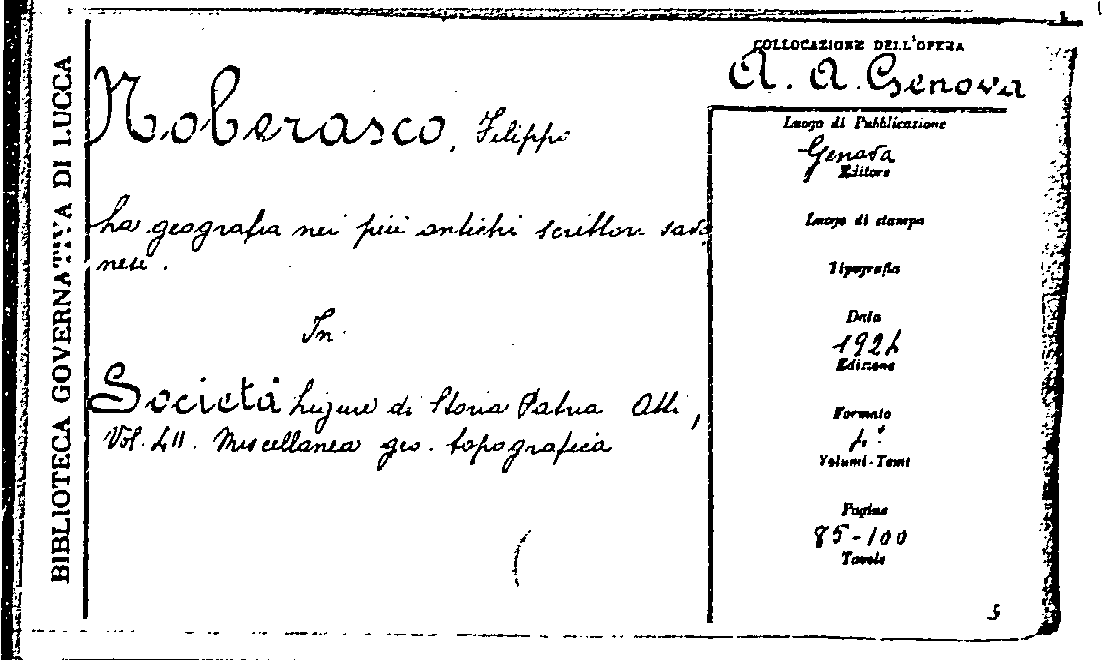 BIBLIOTECA GOVERNATIVA DI LUCCA
Noberasco, Filippo
La geografia nei più antichi scrittori savo-
nesi.
In
Società Ligure di Storia Patria Atti,
Vol. LII. Miscellanea geo. topografica
COLLOCAZIONE DELL'OPERA
A. A. Genova
Luogo di Pubblicazione
Genova
Editore
Luogo di stampa
Tipografia
Data
1924
Edizione
Formato
4°
Volumi-Tomi
Pagine
85-100
Tavole
5